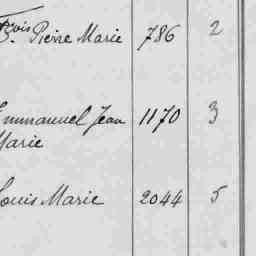 Fçois Pierre Marie 786 2
Emmanuel Jean 1170 3
Marie
Louis Marie 2044 5